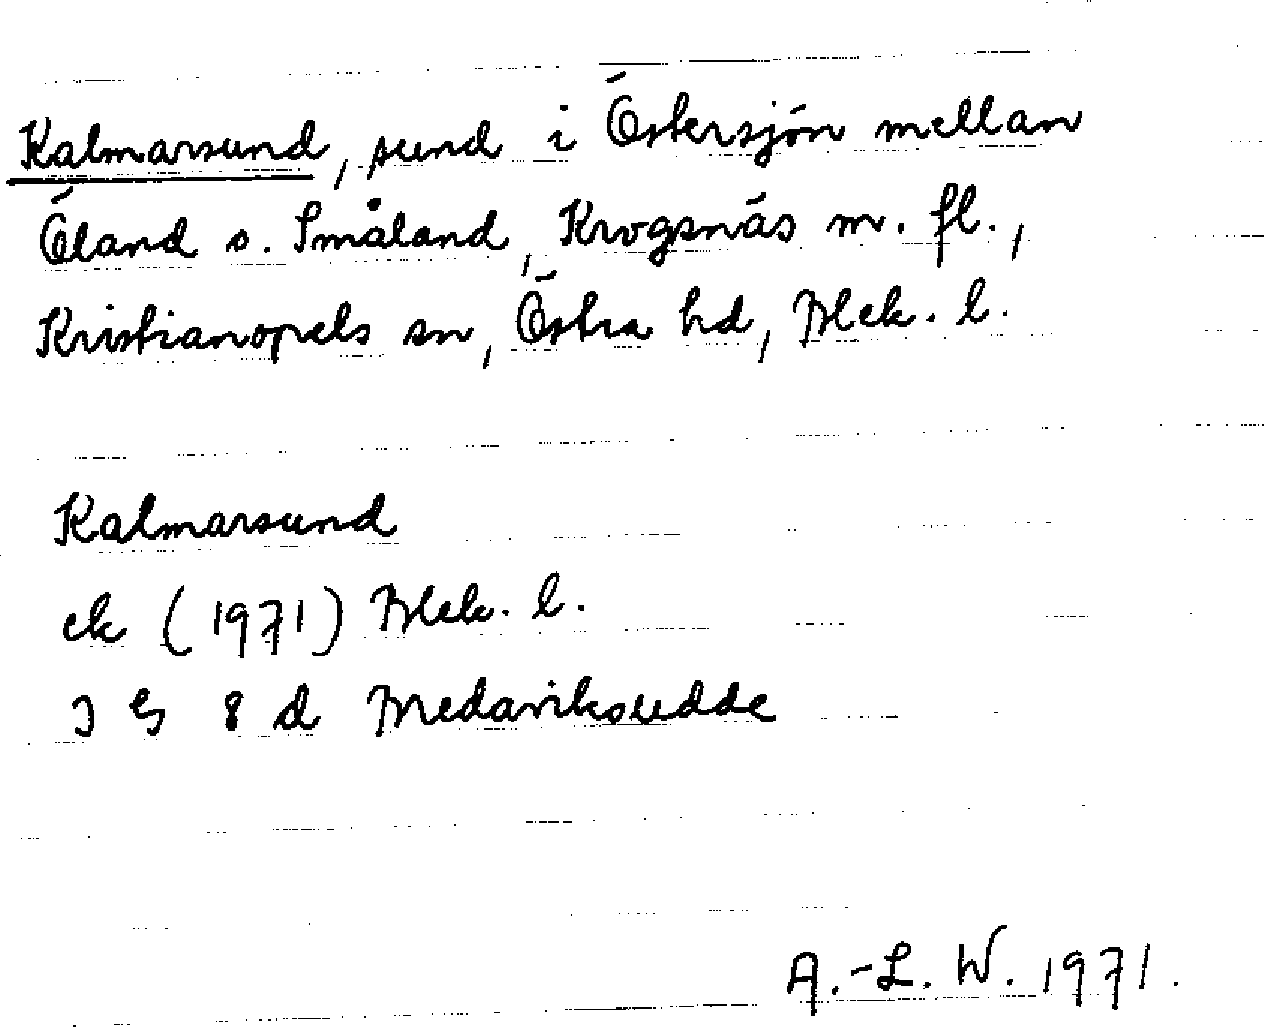 Kalmarsund, sund i Östersjön mellan
Öland o. Småland, Krogsnäs m. fl.,
Kristianopels sn, Östra hd, Blek. l.
Kalmarsund
ek (1971) Blek. l.
3 G 8 d Bredaviksudde
A.-L. W. 1971.